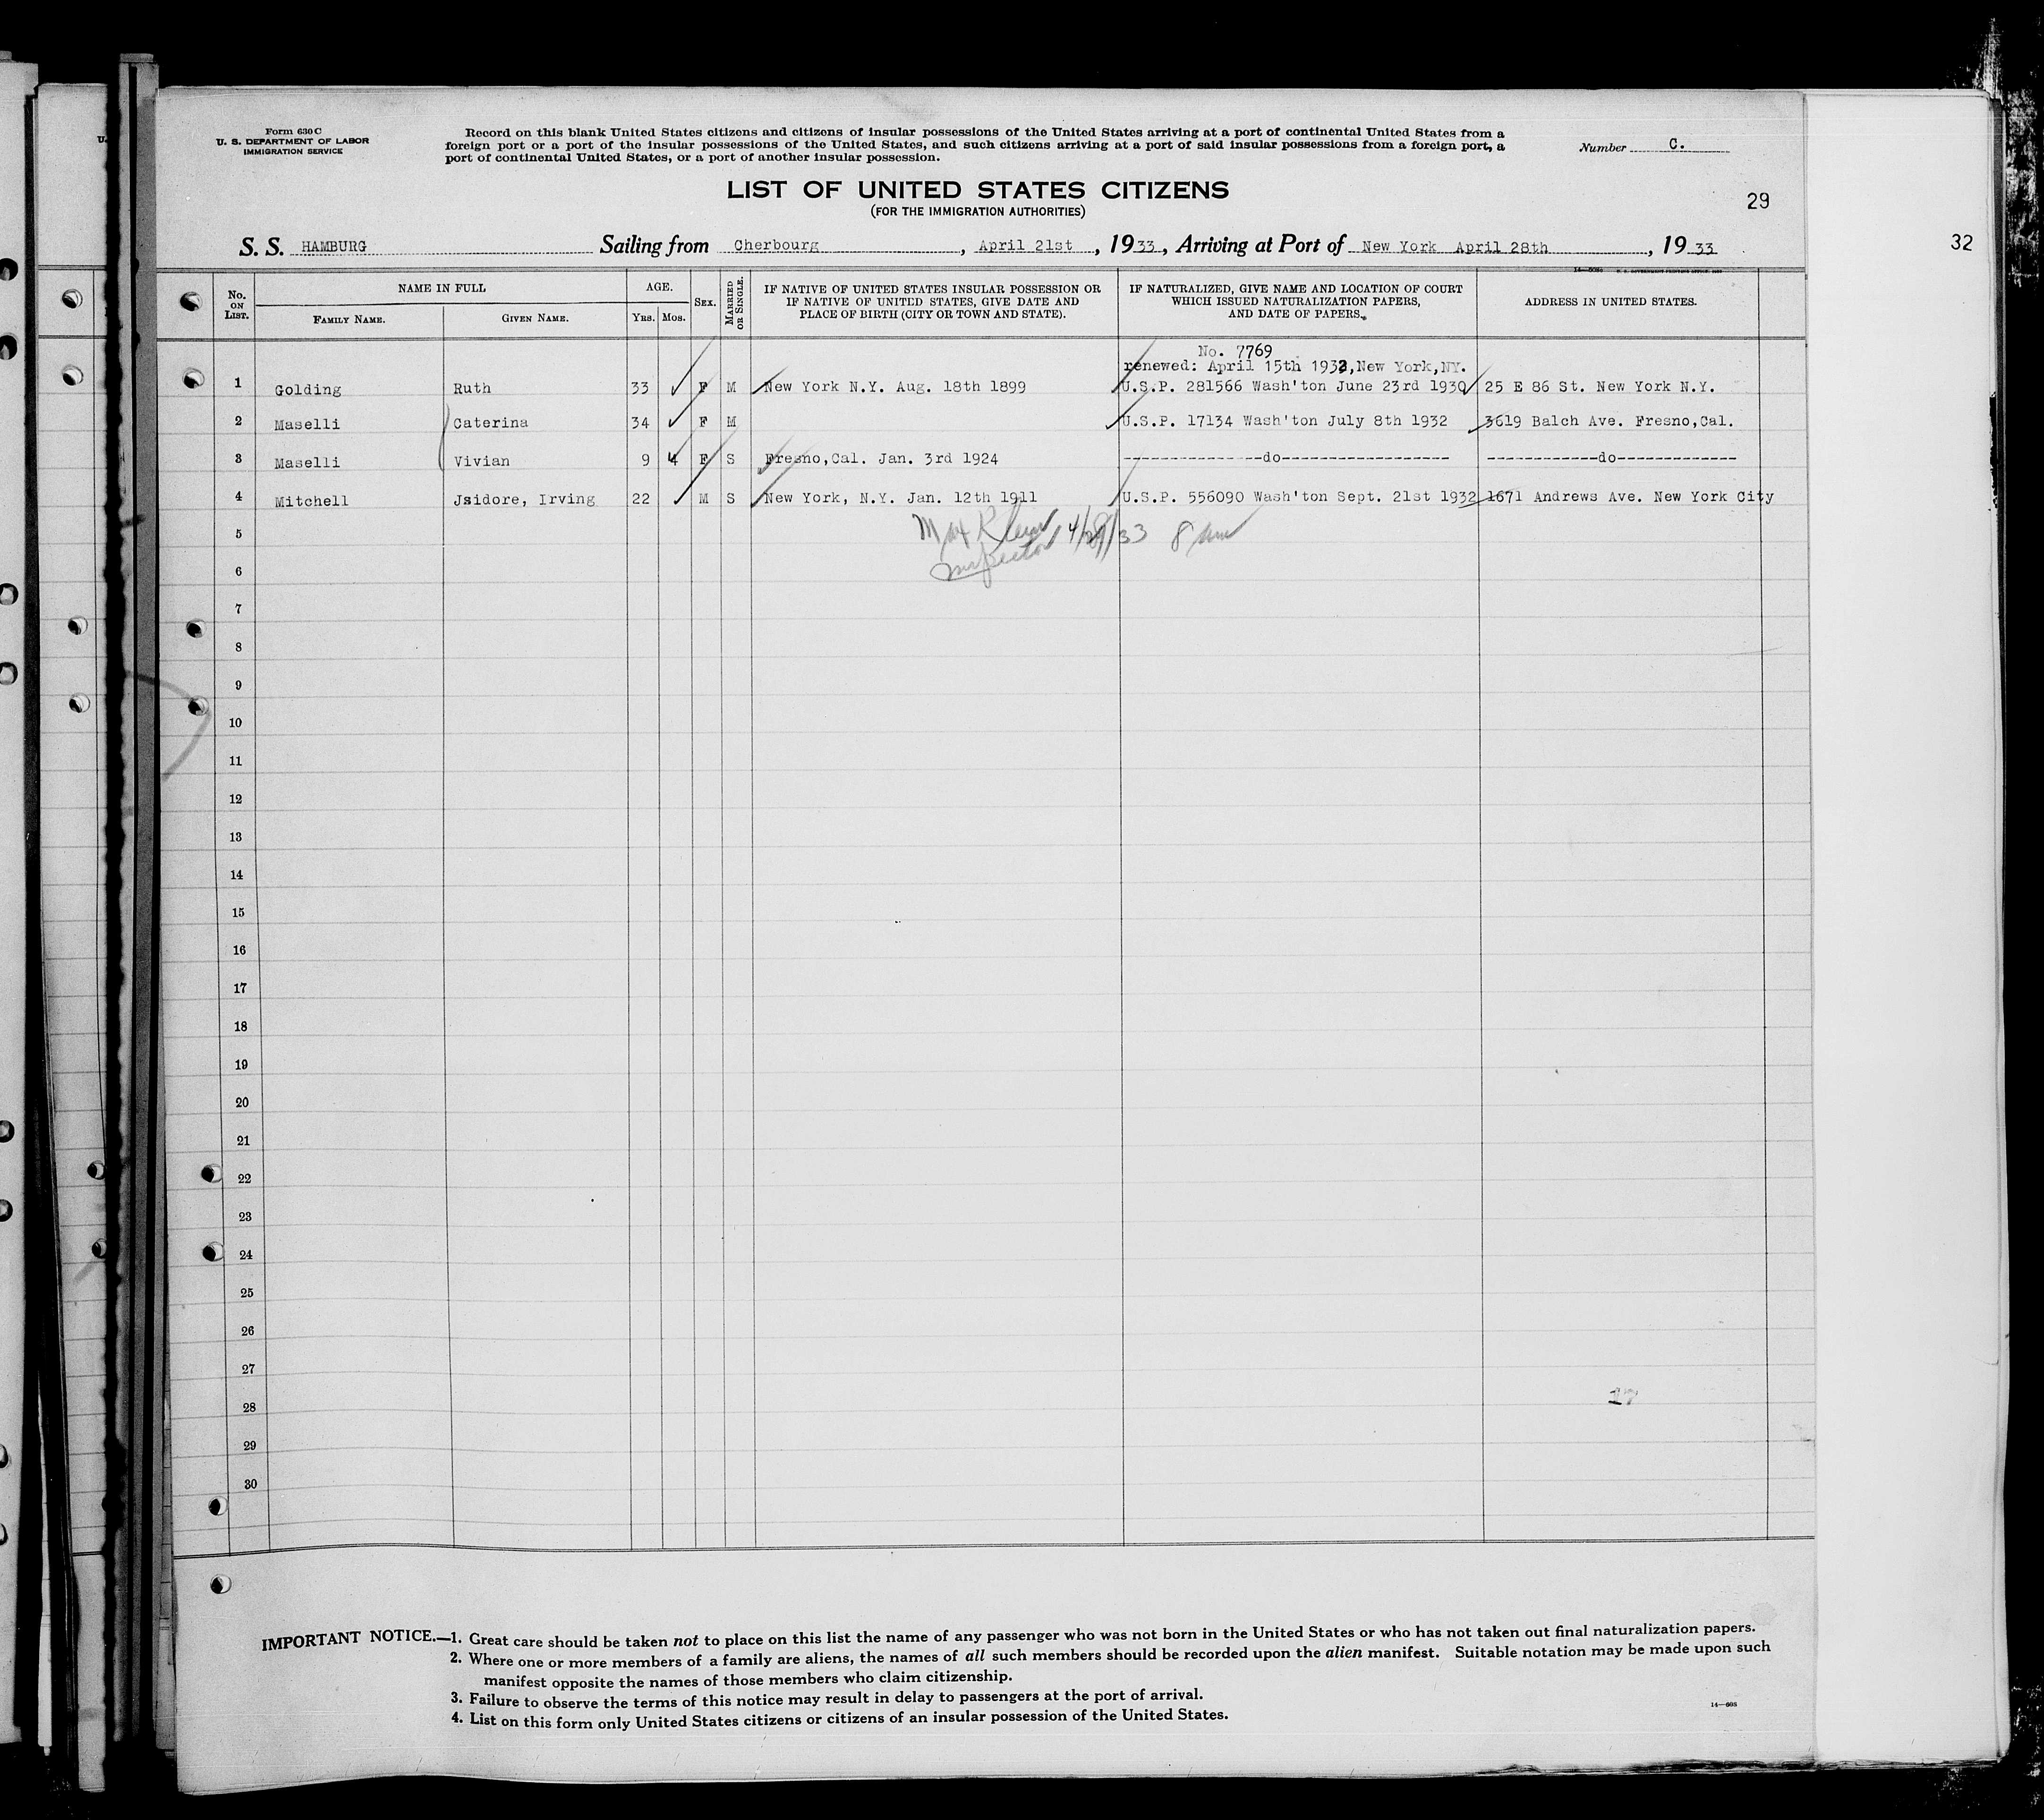 U.
Form 630 C
U. S. DEPARTMENT OF LABOR
IMMIGRATION SERVICE
Record on this blank United States citizens and citizens of insular possessions of the United States arriving at a port of continental United States from a
foreign port or a port of the insular possessions of the United States, and such citizens arriving at a port of said insular possessions from a foreign port, a
port of continental United States, or a port of another insular possession.
Number C.
LIST OF UNITED STATES CITIZENS
(FOR THE IMMIGRATION AUTHORITIES)
29
32
S. S. HAMBURG Sailing from Cherbourg, April 21st, 1933, Arriving at Port of New York April 28th, 1933
No. ON LIST.
NAME IN FULL
FAMILY NAME. GIVEN NAME.
AGE.
YRS. MOS.
SEX.
MARRIED OR SINGLE.
IF NATIVE OF UNITED STATES INSULAR POSSESSION OR
IF NATIVE OF UNITED STATES, GIVE DATE AND
PLACE OF BIRTH (CITY OR TOWN AND STATE).
IF NATURALIZED, GIVE NAME AND LOCATION OF COURT
WHICH ISSUED NATURALIZATION PAPERS,
AND DATE OF PAPERS.
ADDRESS IN UNITED STATES.
No. 7769
renewed: April 15th 1932, New York, NY.
1 Golding Ruth 33 F M New York N.Y. Aug. 18th 1899 U.S.P. 281566 Wash'ton June 23rd 1930 25 E 86 St. New York N.Y.
2 Maselli Caterina 34 F M U.S.P. 17134 Wash'ton July 8th 1932 3619 Balch Ave. Fresno,Cal.
3 Maselli Vivian 9 4 F S Fresno,Cal. Jan. 3rd 1924 ---------------do------------------ ------------do-------------
4 Mitchell Jsidore, Irving 22 M S New York, N.Y. Jan. 12th 1911 U.S.P. 556090 Wash'ton Sept. 21st 1932 1671 Andrews Ave. New York City
Max Klein 4/28/33 8 am
Inspector
5
6
7
8
9
10
11
12
13
14
15
16
17
18
19
20
21
22
23
24
25
26
27
28
29
30
17
IMPORTANT NOTICE.—1. Great care should be taken not to place on this list the name of any passenger who was not born in the United States or who has not taken out final naturalization papers.
2. Where one or more members of a family are aliens, the names of all such members should be recorded upon the alien manifest. Suitable notation may be made upon such
manifest opposite the names of those members who claim citizenship.
3. Failure to observe the terms of this notice may result in delay to passengers at the port of arrival.
4. List on this form only United States citizens or citizens of an insular possession of the United States.